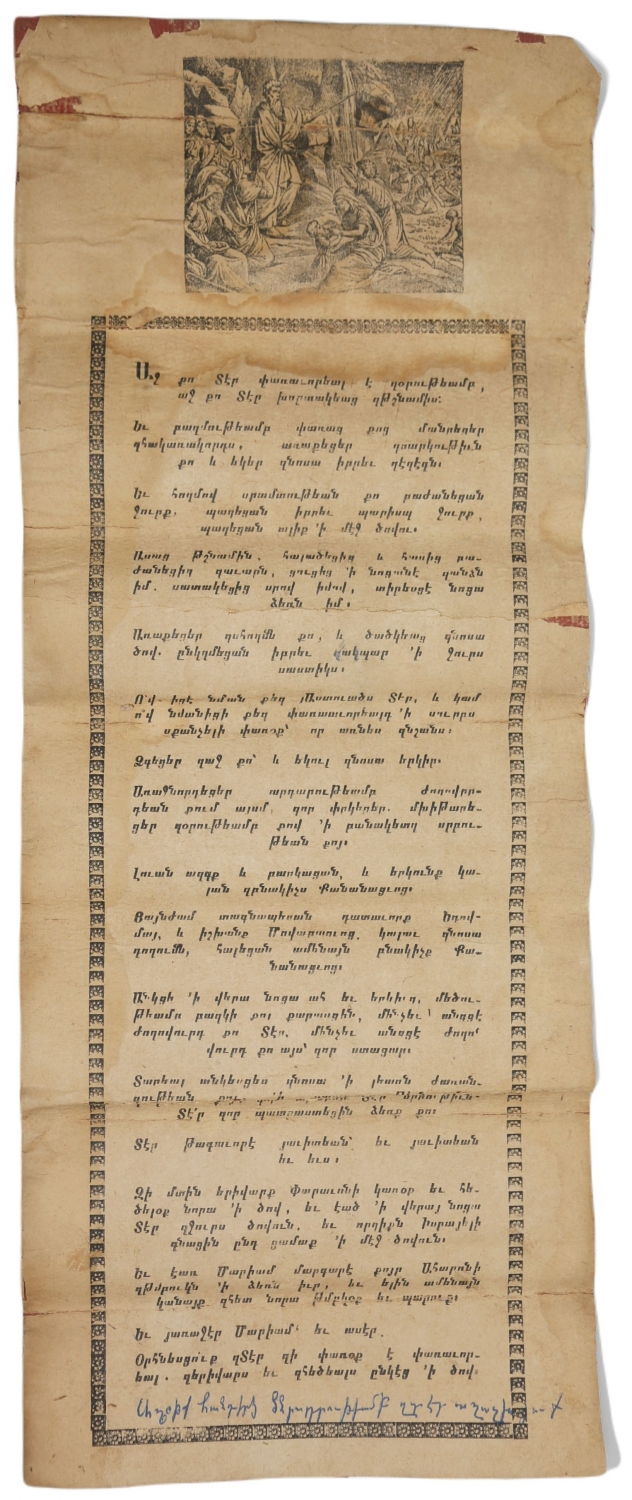 Աջ քո Տէր փառաւորեալ է զօրութեամբ,
աջ քո Տէր խորտակեաց զթշնամիս։
Եւ բազմութեամբ փառաց քոց մանրեցեր
զհակառակորդս, առաքեցեր զբարկութիւն
քո և եկեր զնոսա իբրեւ զեղէգն։
Եւ հողմով սրտմտութեան քո բաժանեցան
ջուրք. պաղեցան իբրեւ պարիսպ ջուրք,
պաղեցան ալիք ՚ի մէջ ծովու։
Ասաց Թշնամին. հալածեցից և հասից բա-
ժանեցից զաւարն, ցուցից ՚ի նոցանէ զանձն
իմ. սատակեցից սրով իմով, տիրեսցէ նոցա
ձեռն իմ։
Առաքեցեր զհողմն քո, և ծածկեաց զնոսա
ծով. ընկղմեցան իբրեւ զկապար ՚ի ջուրս
սաստիկս։
Ո՞վ իցէ նման քեզ յԱստուածս Տէր, և կամ
ո՞վ նմանիցի քեզ փառաւորեալդ ՚ի սուրբս
սքանչելի փառօք՝ որ առնես զնշանս։
Ձգեցեր զաջ քո՝ և եկուլ զնոսա երկիր։
Առաջնորդեցեր արդարութեամբ ժողովրը-
դեան քում այսմ, զոր փրկեցեր. մխիթարե-
ցեր զօրութեամբ քով ՚ի բանակետղ սրբու-
թեան քոյ։
Լուան ազգք և բարկացան, և երկունք կա-
լան զբնակիչս Քանանացւոց։
Յայնժամ տագնապեցան դատաւորք Եդով-
մայ, և իշխանք Մովաբացւոց. կալաւ զնոսա
դողումն, հալեցան ամենայն բնակիչք Քա-
նանացւոց։
Անկցի ՚ի վերա նոցա ահ եւ երկիւղ, մեծու-
թեամբ բազկի քոյ քարասցին, մինչեւ անցցէ
ժողովուրդ քո Տէր, մինչեւ անցցէ ժողո՛
վուրդ քո այս՝ զոր ստացար։
Տարեալ տնկեսցես զնոսա ՚ի լեառն ժառան-
գութեան
Տէ՛ր զոր պատրաստեցին ձեռք քո։
Տէր Թագաւորէ յաւիտեան՝ եւ յաւիտեան
եւ եւս։
Զի մտին երիվարք Փարաւոնի կառօք եւ հե-
ծելօք նորա ՚ի ծով, եւ էած ՚ի վերայ նոցա
Տէր զջուրս ծովուն. եւ որդիքն Իսրայելի
գնացին ընդ ցամաք ՚ի մէջ ծովուն։
Եւ էառ Մարիամ մարգարէ քոյր Ահարոնի
զթմբուկն ՚ի ձեռն իւր, եւ ելին ամենայն
կանայք զհետ նորա թմբկօք եւ պարուք։
Եւ յառաջէր Մարիամ՝ եւ ասէր.
Օրհնեսցո՛ւք զՏէր զի փառօք է փառաւոր-
եալ. զերիվարս եւ զհեծեալս ընկէց ՚ի ծով։